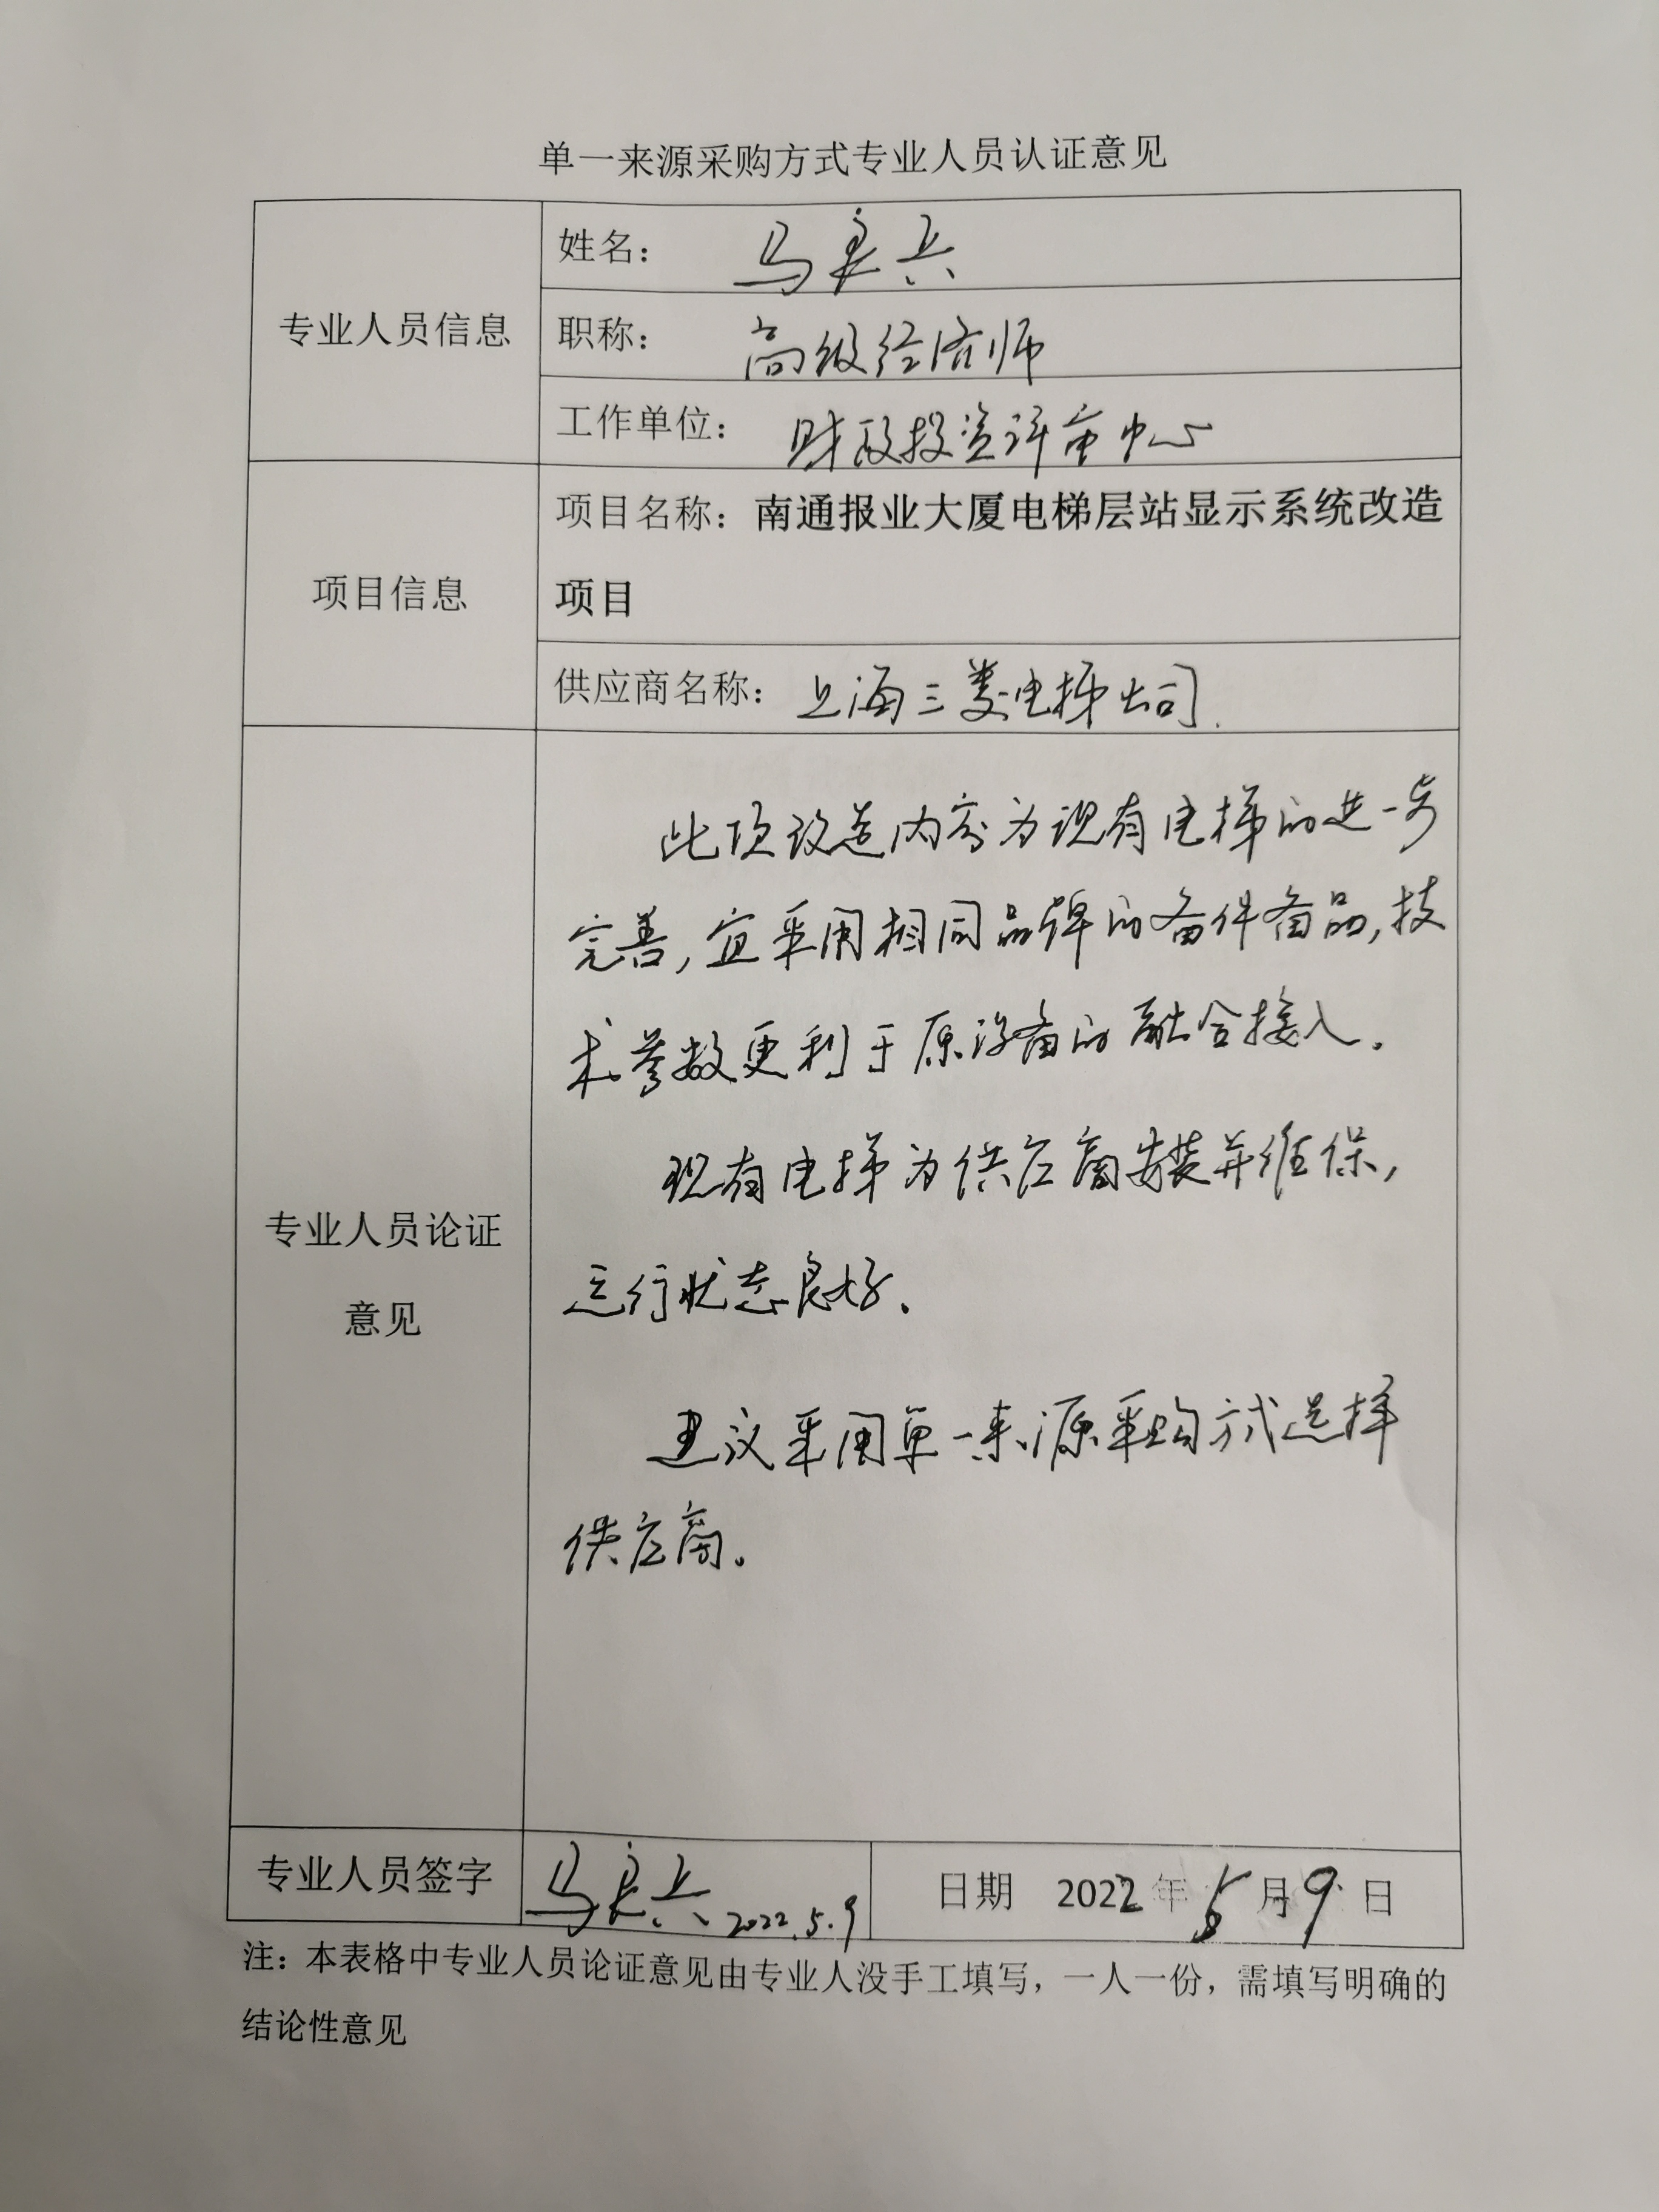 单一来源采购方式专业人员认证意见
专业人员信息
姓名： 马良兵
职称： 高级经济师
工作单位： 财政投资评审中心
项目信息
项目名称：南通报业大厦电梯层站显示系统改造
项目
供应商名称：上海三菱电梯公司.
专业人员论证
意见
此项改造内容为现有电梯的进一步
完善,宜采用相同品牌的备件备品,技
术参数更利于原设备的融合接入。
现有电梯为供应商安装并维保,
运行状态良好。
建议采用单一来源采购方式选择
供应商。
专业人员签字
马良兵 2022.5.9
日期 2022年5月9日
注：本表格中专业人员论证意见由专业人没手工填写，一人一份，需填写明确的
结论性意见